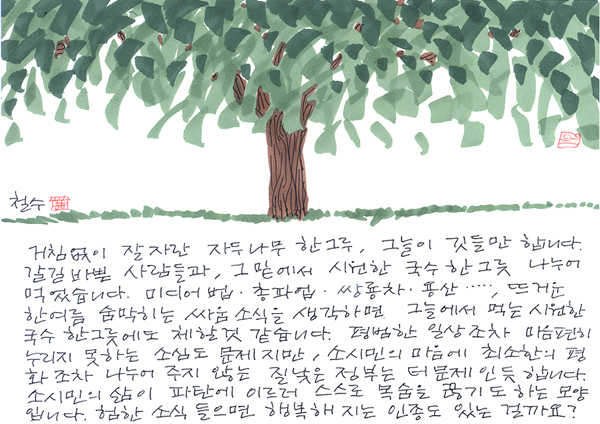 철수
거침없이 잘 자란 자두나무 한그루, 그늘이 깃들만 합니다.
갈길 바쁠 사람들과, 그 밑에서 시원한 국수 한그릇 나누어
먹었습니다. 미디어법·총파업·쌍룡차·용산·····, 뜨거운
한여름 숨막히는 싸움소식을 생각하면 그늘에서 먹는 시원한
국수 한그릇에도 체할것 같습니다. 평범한 일상조차 마음편히
누리지 못하는 소심도 문제지만, 소시민의 마음에 최소한의 평
화조차 나누어 주지 않는 질낮은 정부는 더 문제인듯 합니다.
소시민의 삶이 파탄에 이르러 스스로 목숨을 끊기도 하는 모양
입니다. 험한 소식 들으면 행복해 지는 인종도 있는 걸까요?